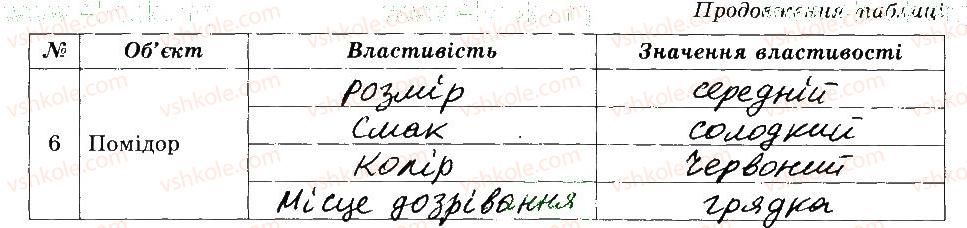 Продовження таблиці
№ Об'єкт Властивість Значення властивості
6 Помідор розмір середній
Смак солодкий
Колір Червоний
Місце дозрівання грядка